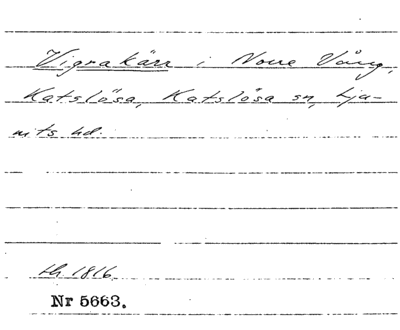 Vignakärr i Norre Vång,
Katslösa, Katslösa sn, Lju-
nits hd.
LH 1816
Nr 5663.